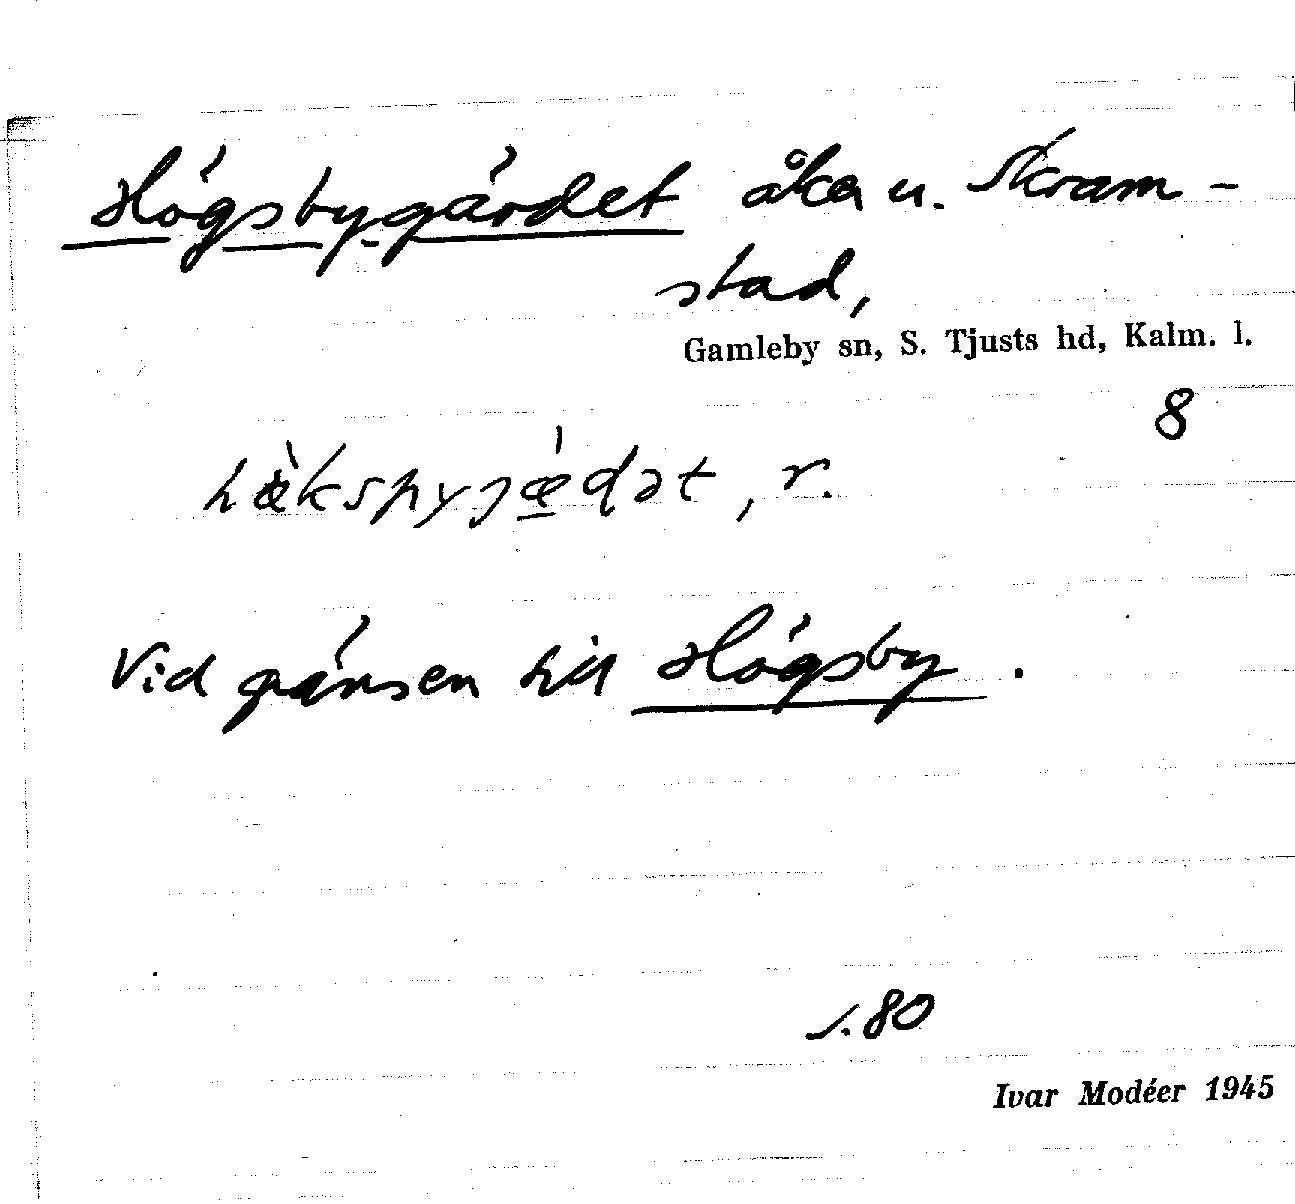 Högsbygärdet åker u. Skram-
stad,
Gamleby sn, S. Tjusts hd, Kalm. l.
8
hæ̀kspyjǽdət, r.
Vid gränsen till Högsby.
s. 80
Ivar Modéer 1945